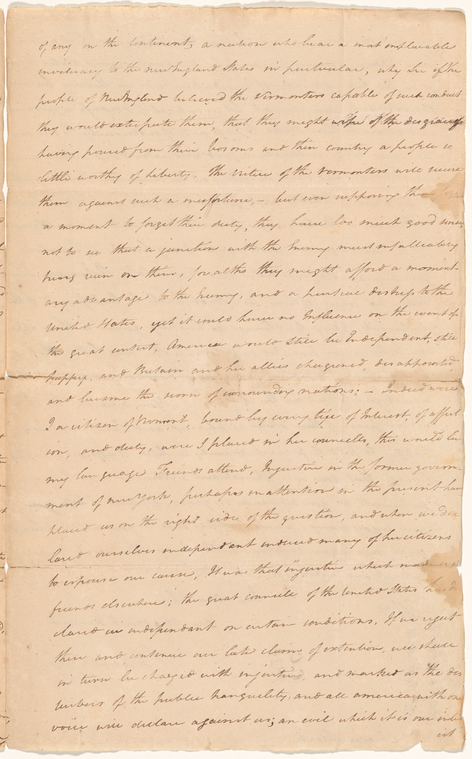 of any on the continent; a nation who bear a most implacable
inveteracy to the newEngland States in particular, why Sir if the
people of NewEngland believed the Vermonters capable of such conduct
they would extirpate them, that they might wipe off the disgrace of
having poured from their bosoms and their country a people so
little worthy of liberty. The virtue of the Vermonters will secure
them against such a misfortune, - but even supposing them
a moment to forget their duty, they have too much good sense
not to see that a junction with the Enemy must infallibly
bring ruin on them, for altho they might afford a moment
ary advantage to the Enemy, and a partial distress to the
United States, yet it could have no Influence on the event of
the great contest, America would still be Independent, still
happy, and Britain and her allies chagrined, disappointed
and become the scorn of surrounding nations: - Indeed were
I a citizen of Vermont, bound by every tye of Interest, of affect
ion, and duty, were I placed in her councells, this would be
my language Friends attend, Injustice in the former govern
ment of newYork, perhaps inattention in the present have
placed us on the right side of the question, and when we de
lared ourselves independent induced many of her citizens
to espouse our cause, It was that injustice which made us
friends elsewhere; the great councils of the United States have
clared us independant on certain conditions, If we reject
them and continue our late claims of extention, we shall
in turn be charged with injustice, and marked as the dis
turbers of the public tranquility, and all america with one
voice will declare against us; an evil which it is our inte
est